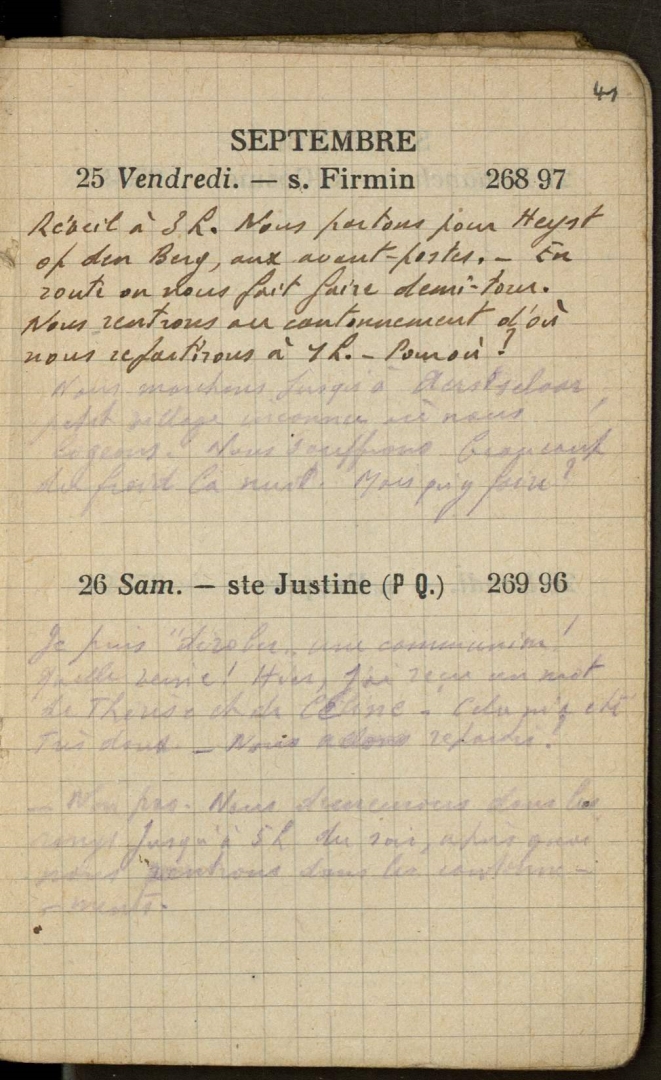 41
SEPTEMBRE
25 Vendredi. — s. Firmin 268 97
Réveil à 3 h. Nous partons pour Heyst
op den Berg, aux avant-postes. – En
route on nous fait faire demi-tour.
Nous rentrons au cantonnement d'où
nous repartirons à 7 h. – Pour où ?
Nous marchons jusqu'à
petit village inconnu où nous
logeons. Nous souffrons beaucoup
du froid la nuit. Mais qu'y faire ?
26 Sam. — ste Justine (P Q.) 269 96
Je puis "dérober" une communion !
Quelle veine ! Hier, j'ai reçu un mot
de Thérèse et de Céline – Cela m'a été
très doux – Nous allons repartir !
– Non pas. Nous demeurons dans les
rangs jusqu'à 5 h du soir, après quoi
nous rentrons dans les cantonne-
-ments.